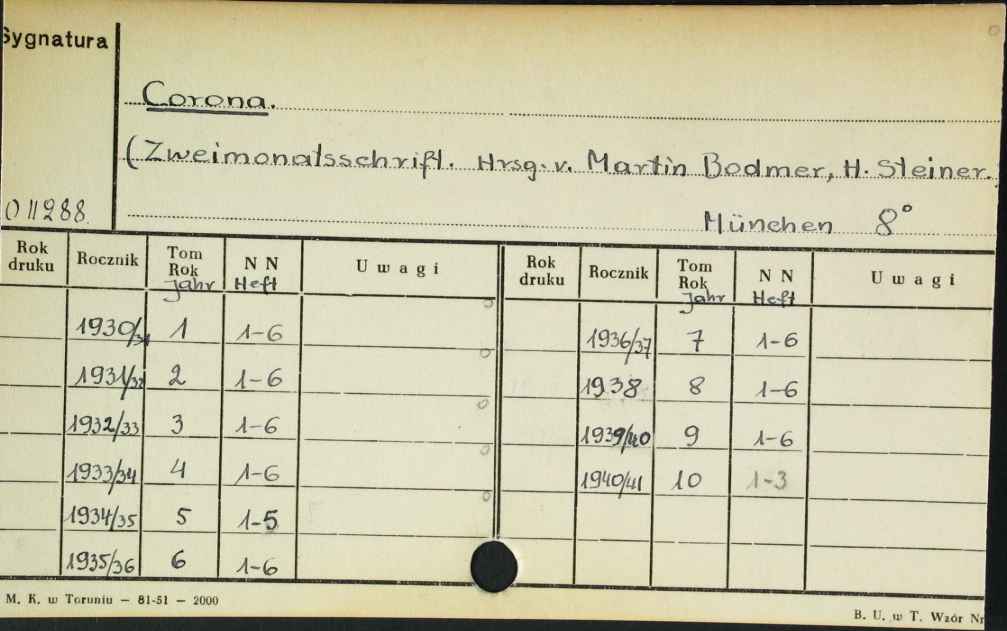 Sygnatura
Corona.
(Zweimonatsschrift. Hrsg. v. Martin Bodmer, H. Steiner.
011288
München 8°
Rok druku Rocznik Tom Rok Jahr N N Heft Uwagi Rok druku Rocznik Tom Rok Jahr N N Heft Uwagi
1930/31 1 1-6 1936/37 7 1-6
1931/32 2 1-6 1938 8 1-6
1932/33 3 1-6 1939/40 9 1-6
1933/34 4 1-6 1940/41 10 1-3
1934/35 5 1-5
1935/36 6 1-6
M. K. w Toruniu — 81-51 — 2000
B. U. w T. Wzór Nr